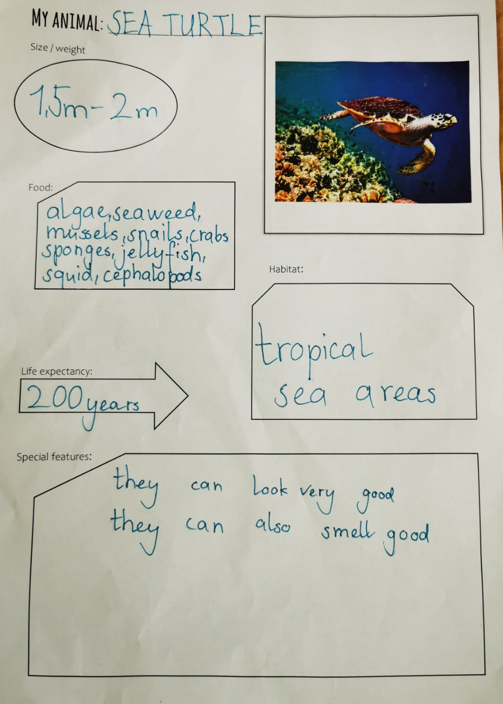 MY ANIMAL: SEA TURTLE
Size / weight
1,5m - 2m
Food:
algae, seaweed,
mussels, snails, crabs
sponges, jelly-fish,
squid, cephalopods
Habitat:
tropical
sea areas
Life expectancy:
200 years
Special features:
they can look very good
they can also smell good